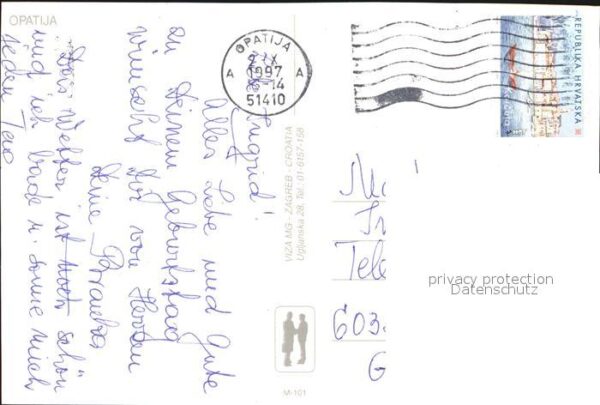 OPATIJA
Liebe Ingrid!
Alles Liebe und Gute
zu Deinem Geburtstag
wünscht Dir von Herzen
Deine
Das Wetter ist noch schön
und ich bade u. sonne mich
jeden Tag
VIZA MG - ZAGREB - CROATIA
Ugljanska 28, Tel. 01-6157-158
M-101
OPATIJA
A 1997 A
14
51410
REPUBLIKA HRVATSKA
Tele
603
G
privacy protection
Datenschutz